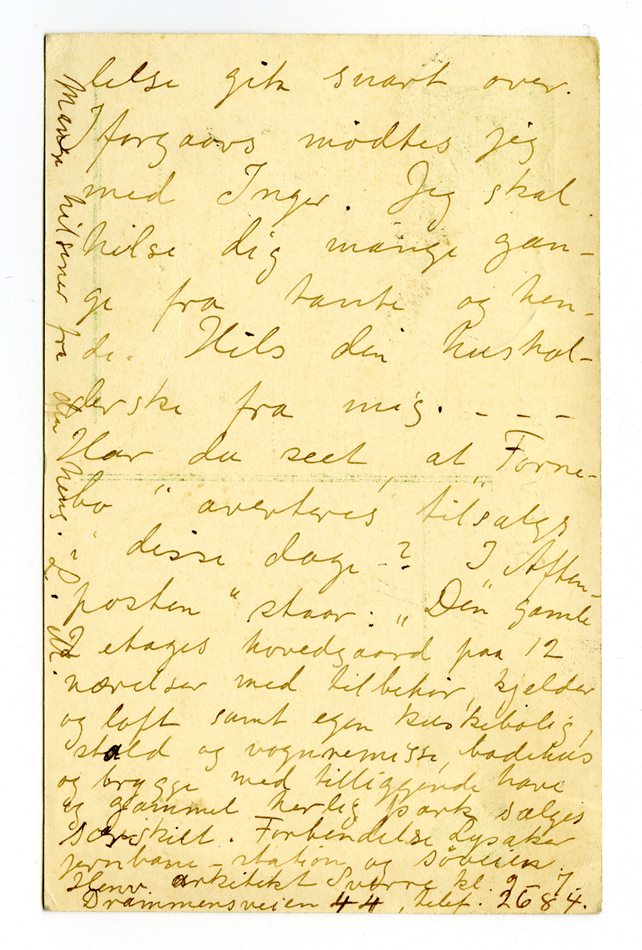 lelse gik snart over.
Iforgaars mødtes jeg
med Inger. Jeg skal
hilse dig mange gan-
ge fra tante og hen-
de. Hils din hushol-
derske fra mig. - - -
Har du seet, at „Forne-
bo“ averteres tilsalgs
i disse dage-? I „Aften-
posten“ staar: „Den gamle
2 etages hovedgaard paa 12
værelser med tilbehør, kjelder
og loft samt egen kuskebolig,
stald og vognremisse, badehus
og brygge med tilliggende have
og gammel herlig park sælges
særskilt. Forbindelse Lysaker
jernbane-station og søveien.
Henv. arkitekt Sverre kl. 2-7.
Drammensveien 44, telf. 2684.
Mange hilsener fra din heng.